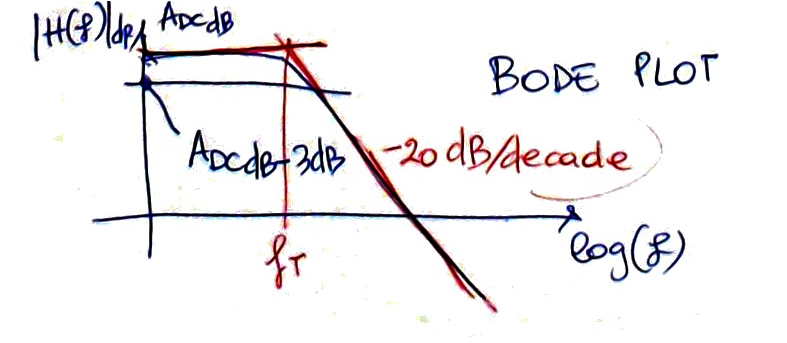 |H(f)|dB
ADCdB
BODE PLOT
ADCdB-3dB
-20 dB/decade
fT
log(f)